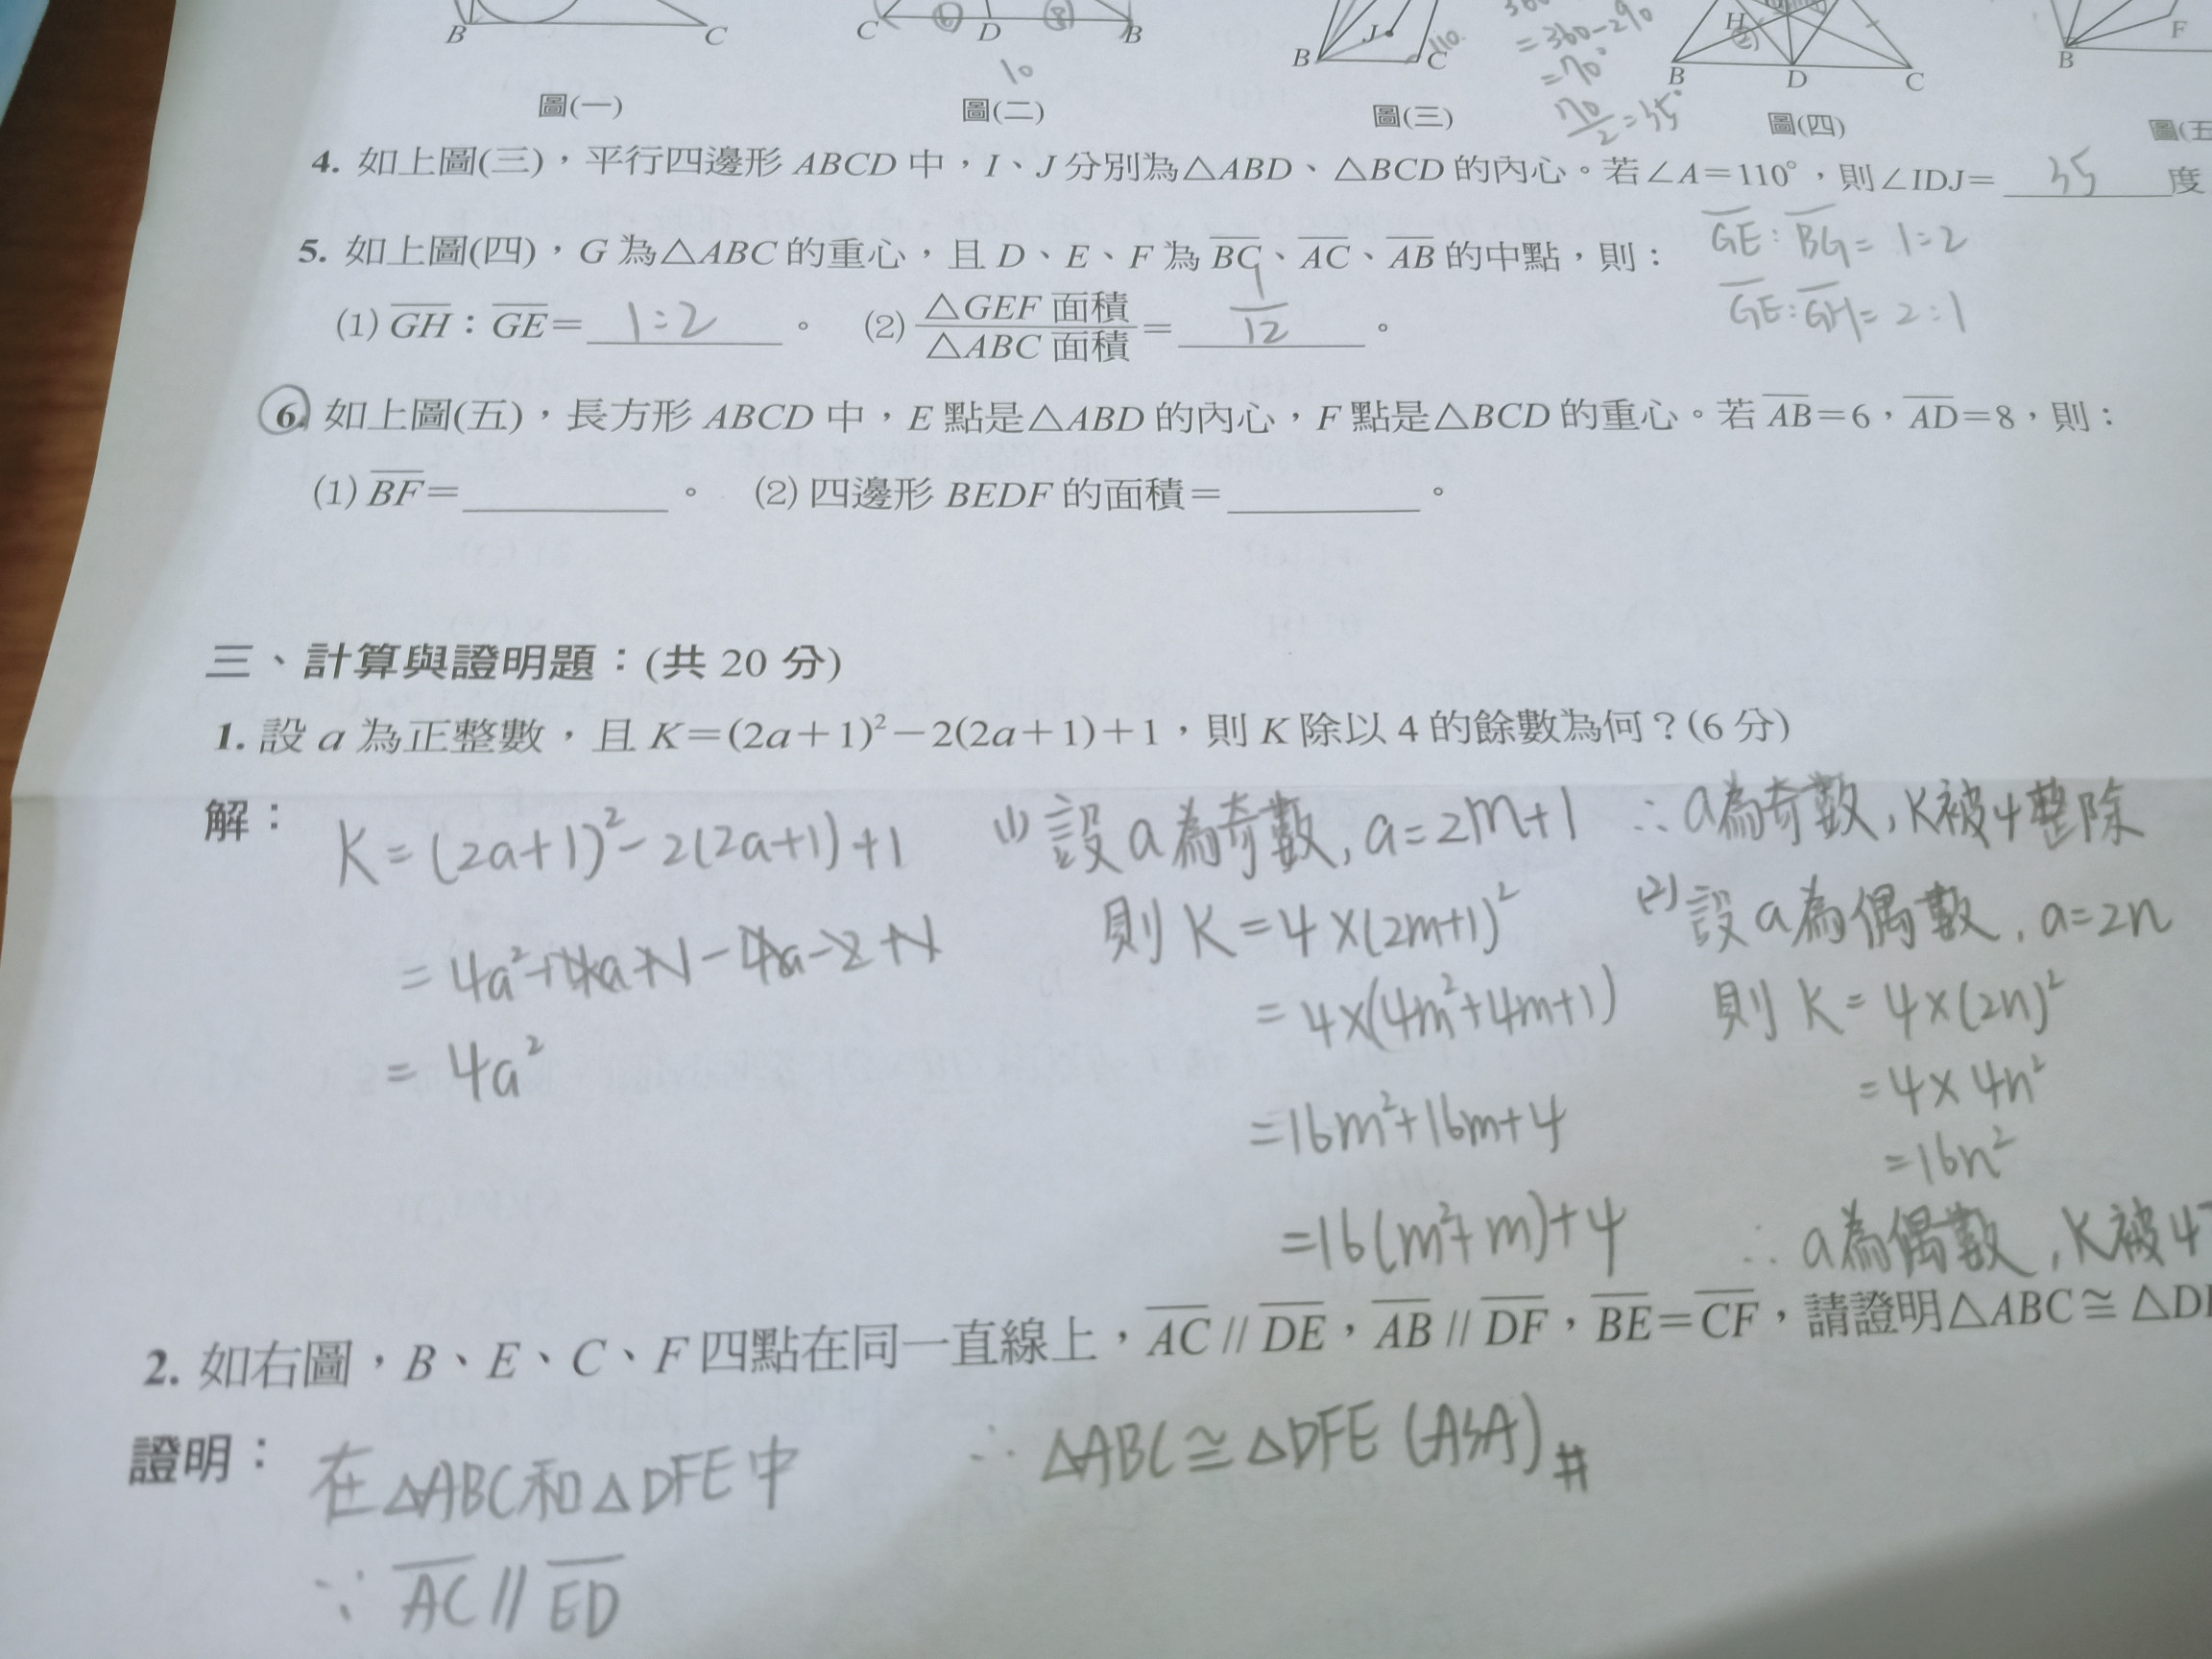 B C
C ⑥ D ⑧ B
10
B J C 110
=360-290
=70°
70/2=35°
H ② B D C
B F
圖(一) 圖(二) 圖(三) 圖(四) 圖(五
4. 如上圖(三)，平行四邊形 ABCD 中，I、J 分別為△ABD、△BCD 的內心。若∠A＝110°，則∠IDJ＝ 35 度
5. 如上圖(四)，G 為△ABC 的重心，且 D、E、F 為 B̅C̅、A̅C̅、A̅B̅ 的中點，則：
G̅E̅：B̅G̅＝1：2
G̅E̅：G̅H̅＝2：1
(1) G̅H̅：G̅E̅＝ 1：2 。 (2) △GEF 面積/△ABC 面積＝ 1/12 。
6. 如上圖(五)，長方形 ABCD 中，E 點是△ABD 的內心，F 點是△BCD 的重心。若 A̅B̅＝6，A̅D̅＝8，則：
(1) B̅F̅＝ 。 (2) 四邊形 BEDF 的面積＝ 。
三、計算與證明題：(共 20 分)
1. 設 a 為正整數，且 K＝(2a＋1)²－2(2a＋1)＋1，則 K 除以 4 的餘數為何？(6 分)
解：
K=(2a+1)²-2(2a+1)+1
=4a²+4a+1-4a-2+1
=4a²
(1) 設a為奇數, a=2m+1
則 K=4×(2m+1)²
=4×(4m²+4m+1)
=16m²+16m+4
=16(m²+m)+4
∴a為奇數,K被4整除
(2) 設a為偶數, a=2n
則 K=4×(2n)²
=4×4n²
=16n²
∴a為偶數,K被4
2. 如右圖，B、E、C、F 四點在同一直線上，A̅C̅ // D̅E̅，A̅B̅ // D̅F̅，B̅E̅＝C̅F̅，請證明△ABC≅△D
證明：
在△ABC和△DFE中
∵ A̅C̅ // E̅D̅
∴ △ABC≅△DFE (ASA)#